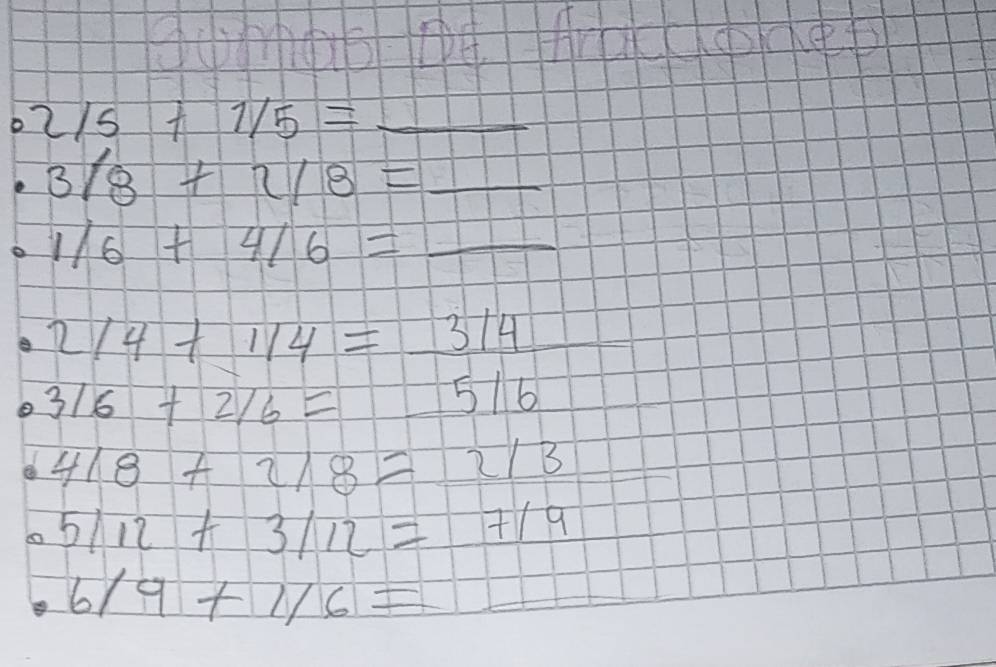 Sumas De Fracciones
• 2/5 + 1/5 = ____
• 3/8 + 2/8 = ____
• 1/6 + 4/6 = ____
• 2/4 + 1/4 = 3/4
• 3/6 + 2/6 = 5/6
• 4/8 + 2/8 = 2/3
• 5/12 + 3/12 = 7/9
• 6/9 + 1/6 = ____